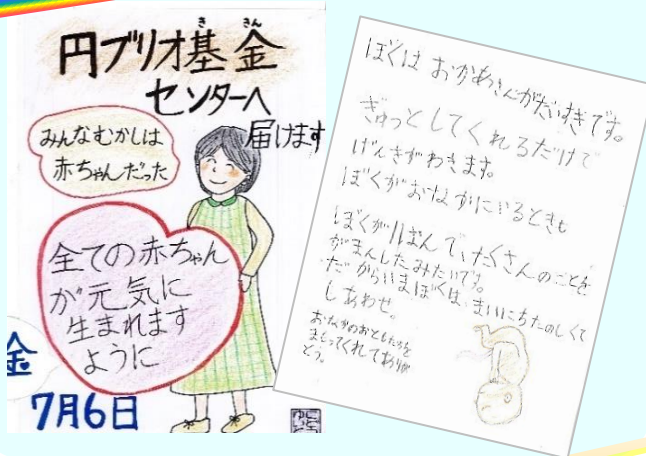 円ブリオ基金
き きん
センターへ
届けます
みんなむかしは
赤ちゃんだった
全ての赤ちゃん
が元気に
生まれます
ように
金
7月6日
ぼくはおかあさんがだいすきです。
ぎゅっとしてくれるだけで
げんきがわきます。
ぼくがおなかにいるときも
たくさんのことを
がまんしたみたいです。
だからいまぼくは、まいにちたのしくて
しあわせ。
まもってくれてありが
とう。